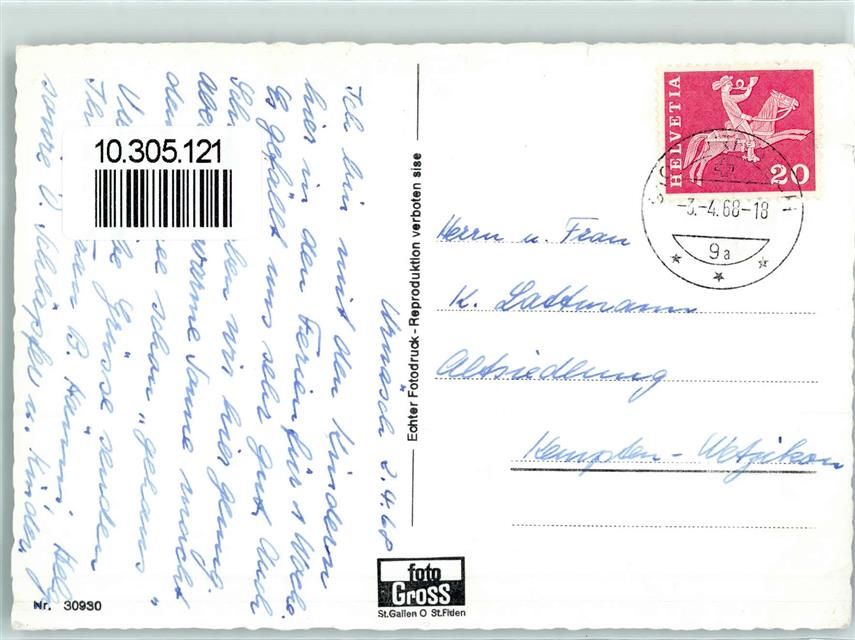 Urnäsch 2.4.68
Ich bin mit den Kindern
hier in den Ferien für 1 Woche.
Es gefällt uns sehr gut. Auch
wir hier genug
warme Sonne macht
schon "
Grüsse senden
B. Hänni, Helg
sowie V. Schläpfer u. Kinder
10.305.121
Echter Fotodruck - Reproduktion verboten sise
HELVETIA
20
-3.-4.68-18
9a
Herrn u. Frau
K. Lattmann
Altsiedlung
Kempten - Wetzikon
foto
Gross
St.Gallen O St.Fiden
Nr. 30930